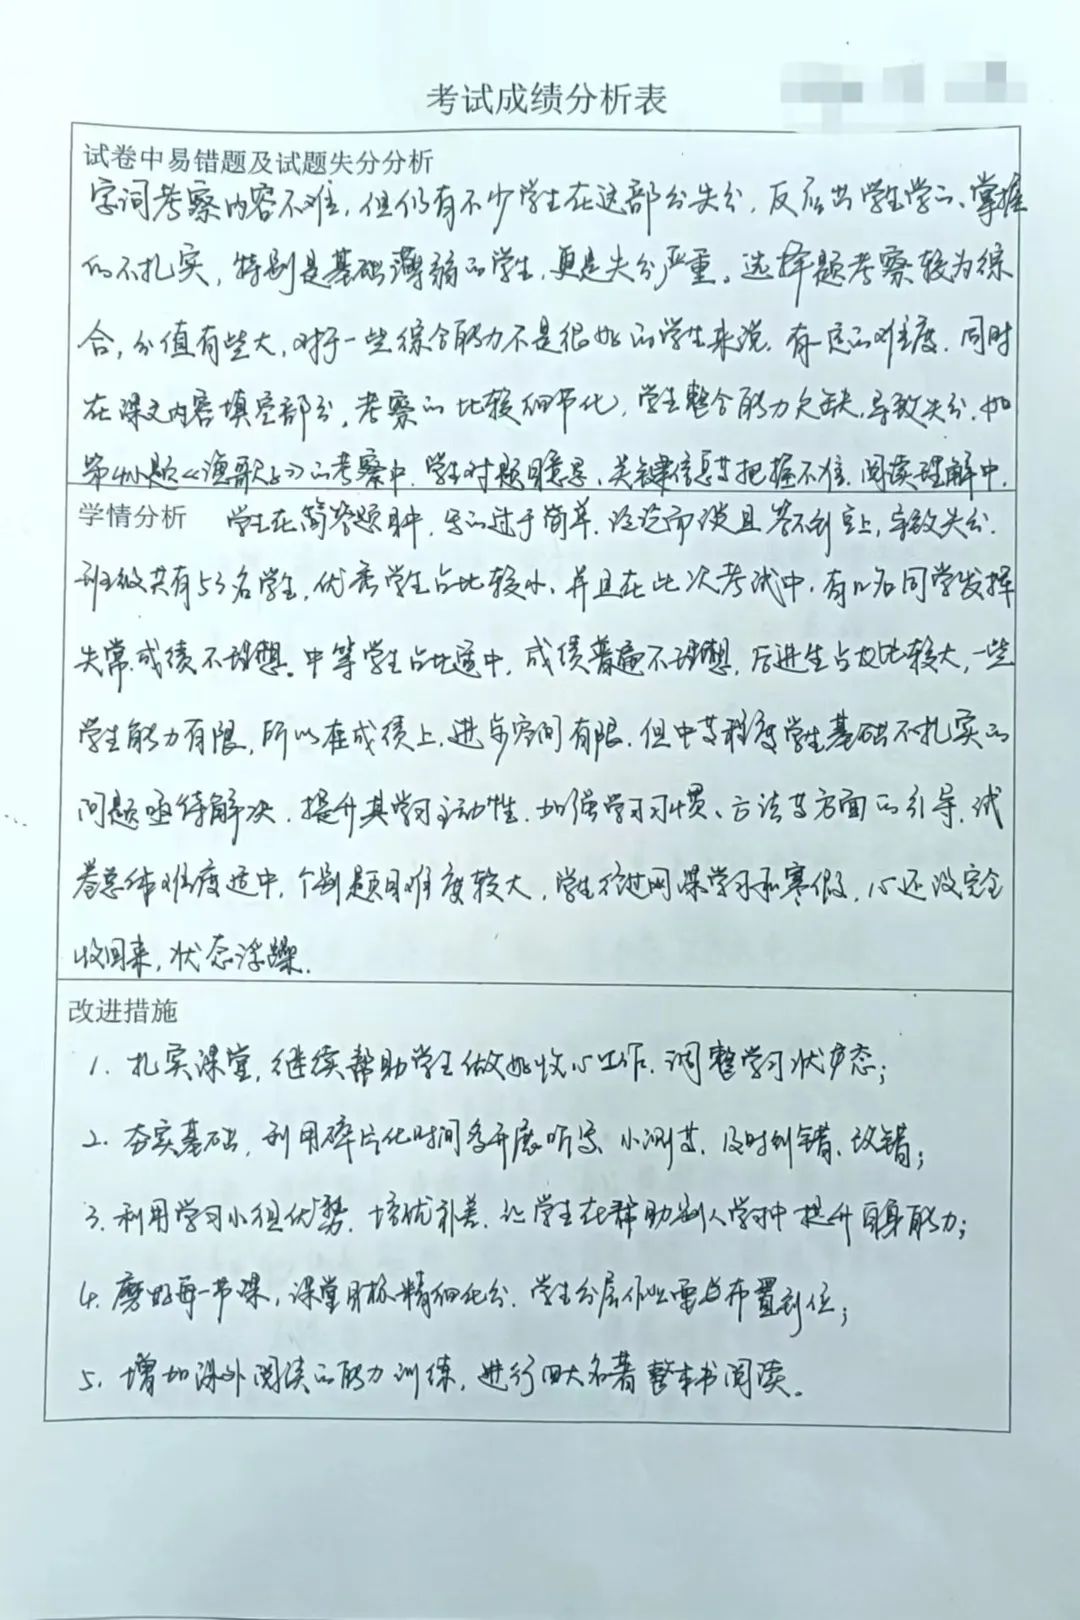 考试成绩分析表
试卷中易错题及试题失分分析
字词考察内容不难，但仍有不少学生在这部分失分，反应出学生学习、掌握
的不扎实，特别是基础薄弱的学生，更是失分严重。选择题考察较为综
合，分值有些大，对于一些综合能力不是很好的学生来说，有一定的难度，同时
在课文内容填空部分，考察的比较细节化，学生整合能力欠缺，导致失分，如
第4小题《渔歌子》的考察中，学生对题目意思、关键信息等把握不准，阅读理解中，
学情分析 学生在简答题目中，写的过于简单，泛泛而谈且答不到点上，导致失分.
班级共有53名学生，优秀学生占比较小，并且在此次考试中，有几名同学发挥
失常，成绩不理想。中等学生占比适中，成绩普遍不理想，后进生占比较大，一些
学生能力有限，所以在成绩上，进步空间有限，但中等程度学生基础不扎实的
问题亟待解决，提升其学习主动性，加强学习习惯、方法等方面的引导，试
卷总体难度适中，个别题目难度较大，学生经过网课学习和寒假，心还没完全
收回来，状态浮躁.
改进措施
1. 扎实课堂，继续帮助学生做好收心工作，调整学习状态；
2. 夯实基础，利用碎片化时间多开展听写、小测等，及时纠错、改错；
3. 利用学习小组优势，培优补差，让学生在帮助别人学习中提升自身能力；
4. 磨好每一节课，课堂目标精细化分，学生分层作业要点布置到位；
5. 增加课外阅读的能力训练，进行四大名著整本书阅读。